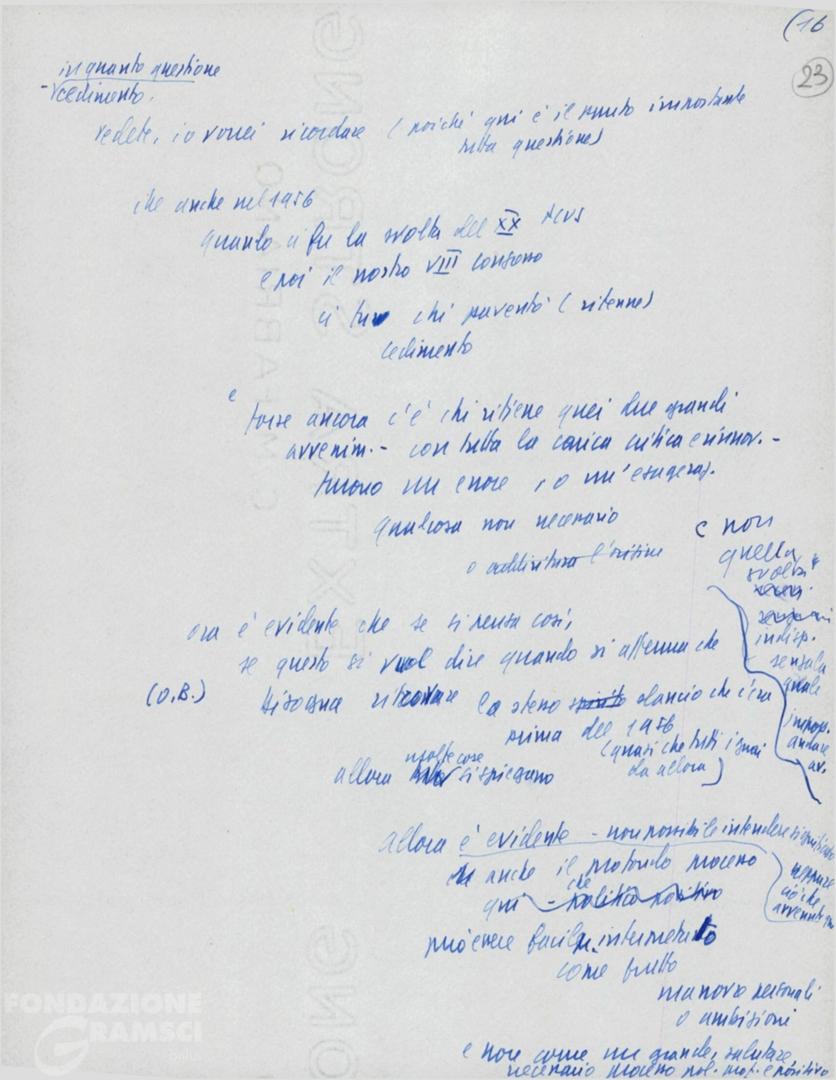 (16
23
in quanto questione
- cedimento.
vedete, io vorrei ricordare (poiché qui è il punto importante
della questione)
che anche nel 1956
quando ci fu la svolta del XX PCUS
e poi il nostro VIII congresso
ci fu chi paventò (ritenne)
cedimento
e
forse ancora c'è chi ritiene quei due grandi
avvenim. - con tutta la carica critica e rinnov. -
furono un errore, o un'esageraz.
qualcosa non necessario
o addirittura l'origine
e non
quella
svolta
indisp.
senza la
quale
impos.
andare
av.
ora è evidente che se si pensa così,
se questo si vuol dire quando si afferma che
(O.B.)
bisogna ritrovare lo stesso spirito slancio che c'era
prima del 1956
(quasi che tutti i guai
da allora)
allora molte cose si spiegano
allora è evidente - non possibile intendere significato
anche il profondo processo
qui - che politico positivo
neppure
ciò che
avvenuto
può essere facilm. interpretato
come frutto
manovre personali
o ambizioni
e non come un grande, salutare
necessario processo pol. mat. e positivo
FONDAZIONE
GRAMSCI